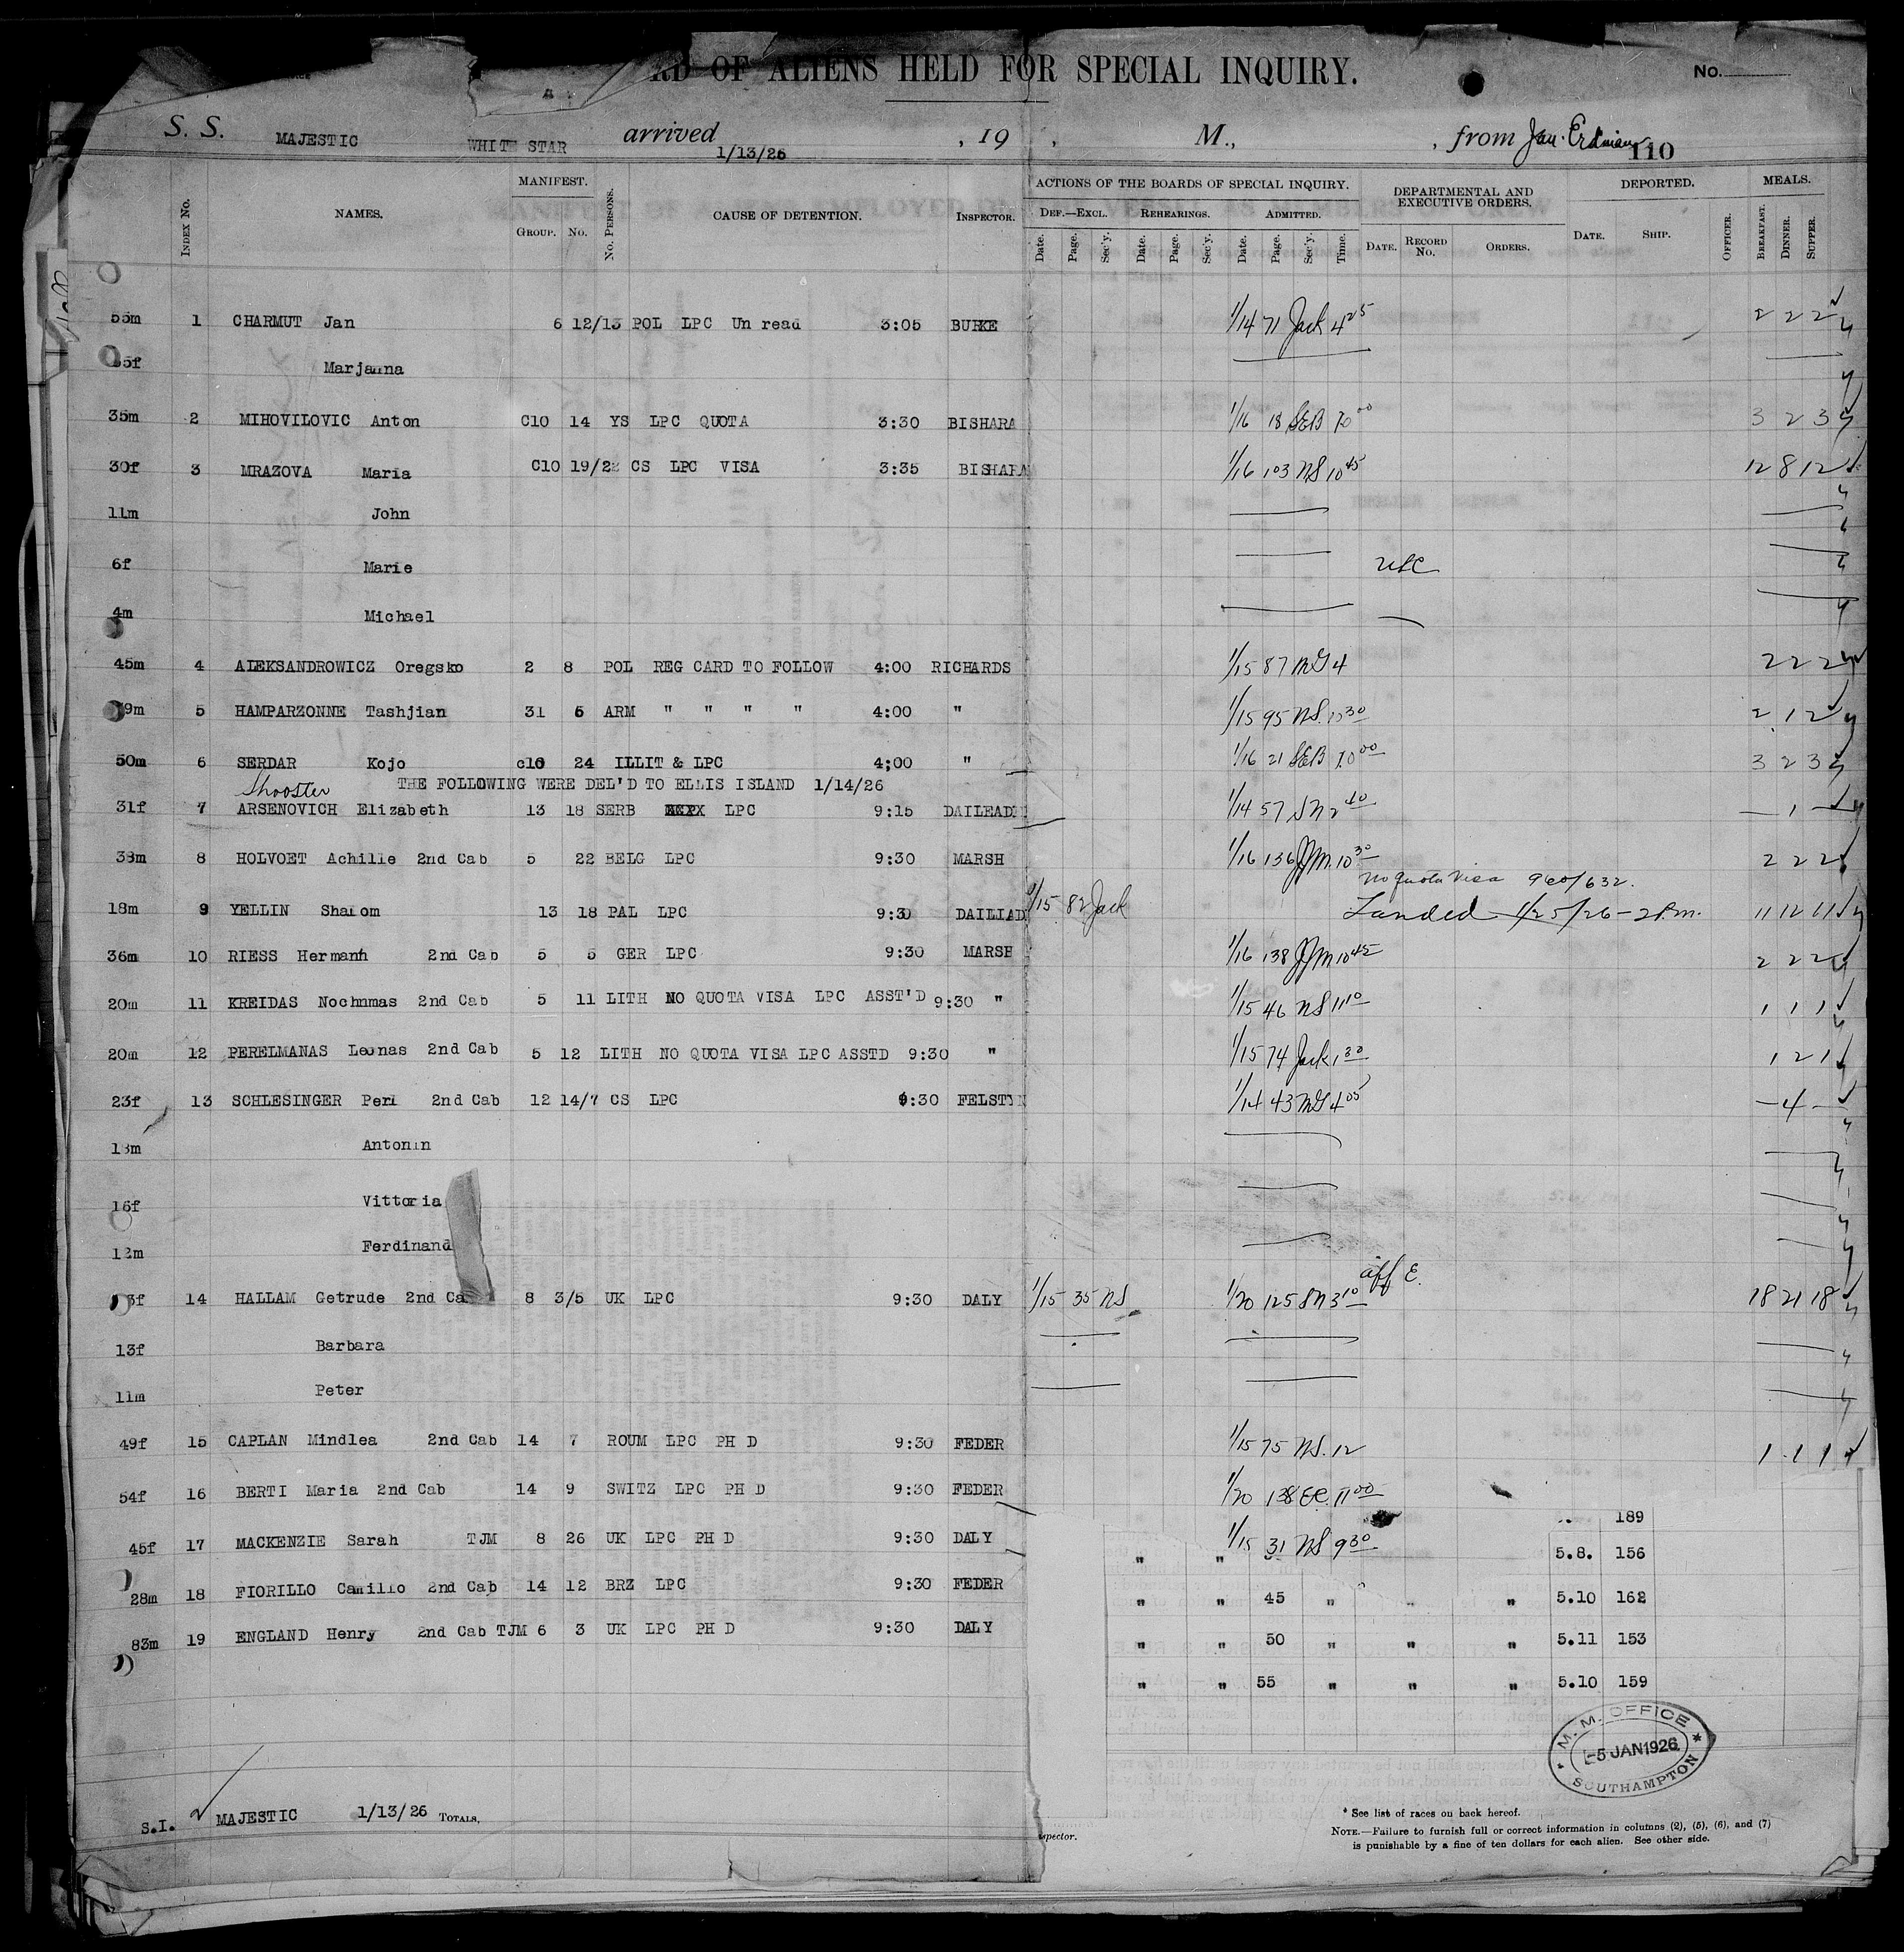 RD OF ALIENS HELD FOR SPECIAL INQUIRY.
No.
S. S. MAJESTIC WHITE STAR arrived 1/13/26 , 19 , M., , from Jan. 110
INDEX No. NAMES. MANIFEST. GROUP. No. No. PERSONS. CAUSE OF DETENTION. INSPECTOR. ACTIONS OF THE BOARDS OF SPECIAL INQUIRY. DEPARTMENTAL AND EXECUTIVE ORDERS. DEPORTED. MEALS.
DEF.—EXCL. REHEARINGS. ADMITTED.
Date. Page. Sec'y. Date. Page. Sec'y. Date. Page. Sec'y. Time. DATE. RECORD No. ORDERS. DATE. SHIP. OFFICER. BREAKFAST. DINNER. SUPPER.
55m 1 CHARMUT Jan 6 12/13 POL LPC Un read 3:05 BURKE 1/14 71 Jack 4 25 2 2 2
35f Marjanna
35m 2 MIHOVILOVIC Anton C10 14 YS LPC QUOTA 3:30 BISHARA 1/16 18 SEB 10 00 3 2 3
30f 3 MRAZOVA Maria C10 19/22 CS LPC VISA 3:35 BISHARA 1/16 103 NS 10 45 12 8 12
11m John
6f Marie USC
4m Michael
45m 4 ALEKSANDROWICZ Oregsko 2 8 POL REG CARD TO FOLLOW 4:00 RICHARDS 1/15 87 MG 4 2 2 2
9m 5 HAMPARZONNE Tashjian 31 6 ARM " " " " 4:00 " 1/15 95 NS. 10 30 2 1 2
50m 6 SERDAR Kojo c10 24 ILLIT & LPC 4;00 " 1/16 21 SEB 10 00 3 2 3
Shooster THE FOLLOWING WERE DEL'D TO ELLIS ISLAND 1/14/26
31f 7 ARSENOVICH Elizabeth 13 18 SERB LPC 9:15 DAILEAD 1/14 57 SN 2 40 — 1 —
38m 8 HOLVOET Achille 2nd Cab 5 22 BELG LPC 9:30 MARSH 1/16 136 JJM 10 30 2 2 2
No quota visa 960/632.
18m 9 YELLIN Shalom 13 18 PAL LPC 9:30 DAILIAD 1/15 82 Jack Landed 1/25/26 - 2 P.m. 11 12 11
36m 10 RIESS Hermann 2nd Cab 5 5 GER LPC 9:30 MARSH 1/16 138 JJM 10 45 2 2 2
20m 11 KREIDAS Nochmmas 2nd Cab 5 11 LITH NO QUOTA VISA LPC ASST'D 9:30 " 1/15 46 NS 11 10 1 1 1
20m 12 PERELMANAS Leonas 2nd Cab 5 12 LITH NO QUOTA VISA LPC ASSTD 9:30 " 1/15 74 Jack 1 30 1 2 1
23f 13 SCHLESINGER Perl 2nd Cab 12 14/7 CS LPC 9:30 FELSTYN 1/14 43 MG 4 05 — 4 —
18m Antonin
16f Vittoria
12m Ferdinand
aff E.
3f 14 HALLAM Getrude 2nd Ca 8 3/5 UK LPC 9:30 DALY 1/15 35 NS 1/20 125 SN 3 10 18 21 18
13f Barbara
11m Peter
49f 15 CAPLAN Mindlea 2nd Cab 14 7 ROUM LPC PH D 9:30 FEDER 1/15 75 NS. 12 1 1 1
54f 16 BERTI Maria 2nd Cab 14 9 SWITZ LPC PH D 9:30 FEDER 1/20 138 EC. 11 00
189
45f 17 MACKENZIE Sarah TJM 8 26 UK LPC PH D 9:30 DALY 1/15 31 NS 9 30
" " 5.8. 156
28m 18 FIORILLO Camillo 2nd Cab 14 12 BRZ LPC 9:30 FEDER
" " 45 " " " 5.10 162
83m 19 ENGLAND Henry 2nd Cab TJM 6 3 UK LPC PH D 9:30 DALY
" " 50 " " " 5.11 153
" " 55 " " " 5.10 159
M. M. OFFICE
5 JAN 1926
SOUTHAMPTON
S.I. MAJESTIC 1/13/26 TOTALS,
spector.
* See list of races on back hereof.
NOTE.—Failure to furnish full or correct information in columns (2), (5), (6), and (7)
is punishable by a fine of ten dollars for each alien. See other side.